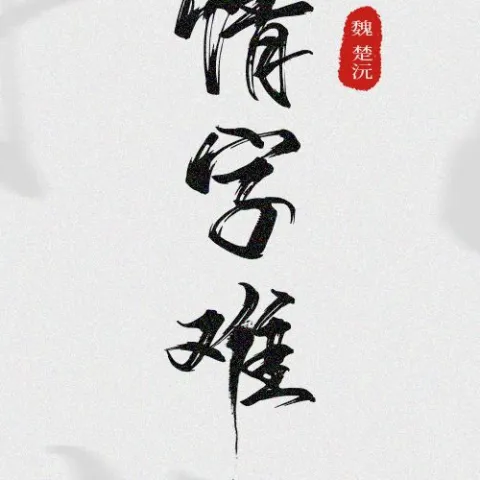 魏楚沅
情字难